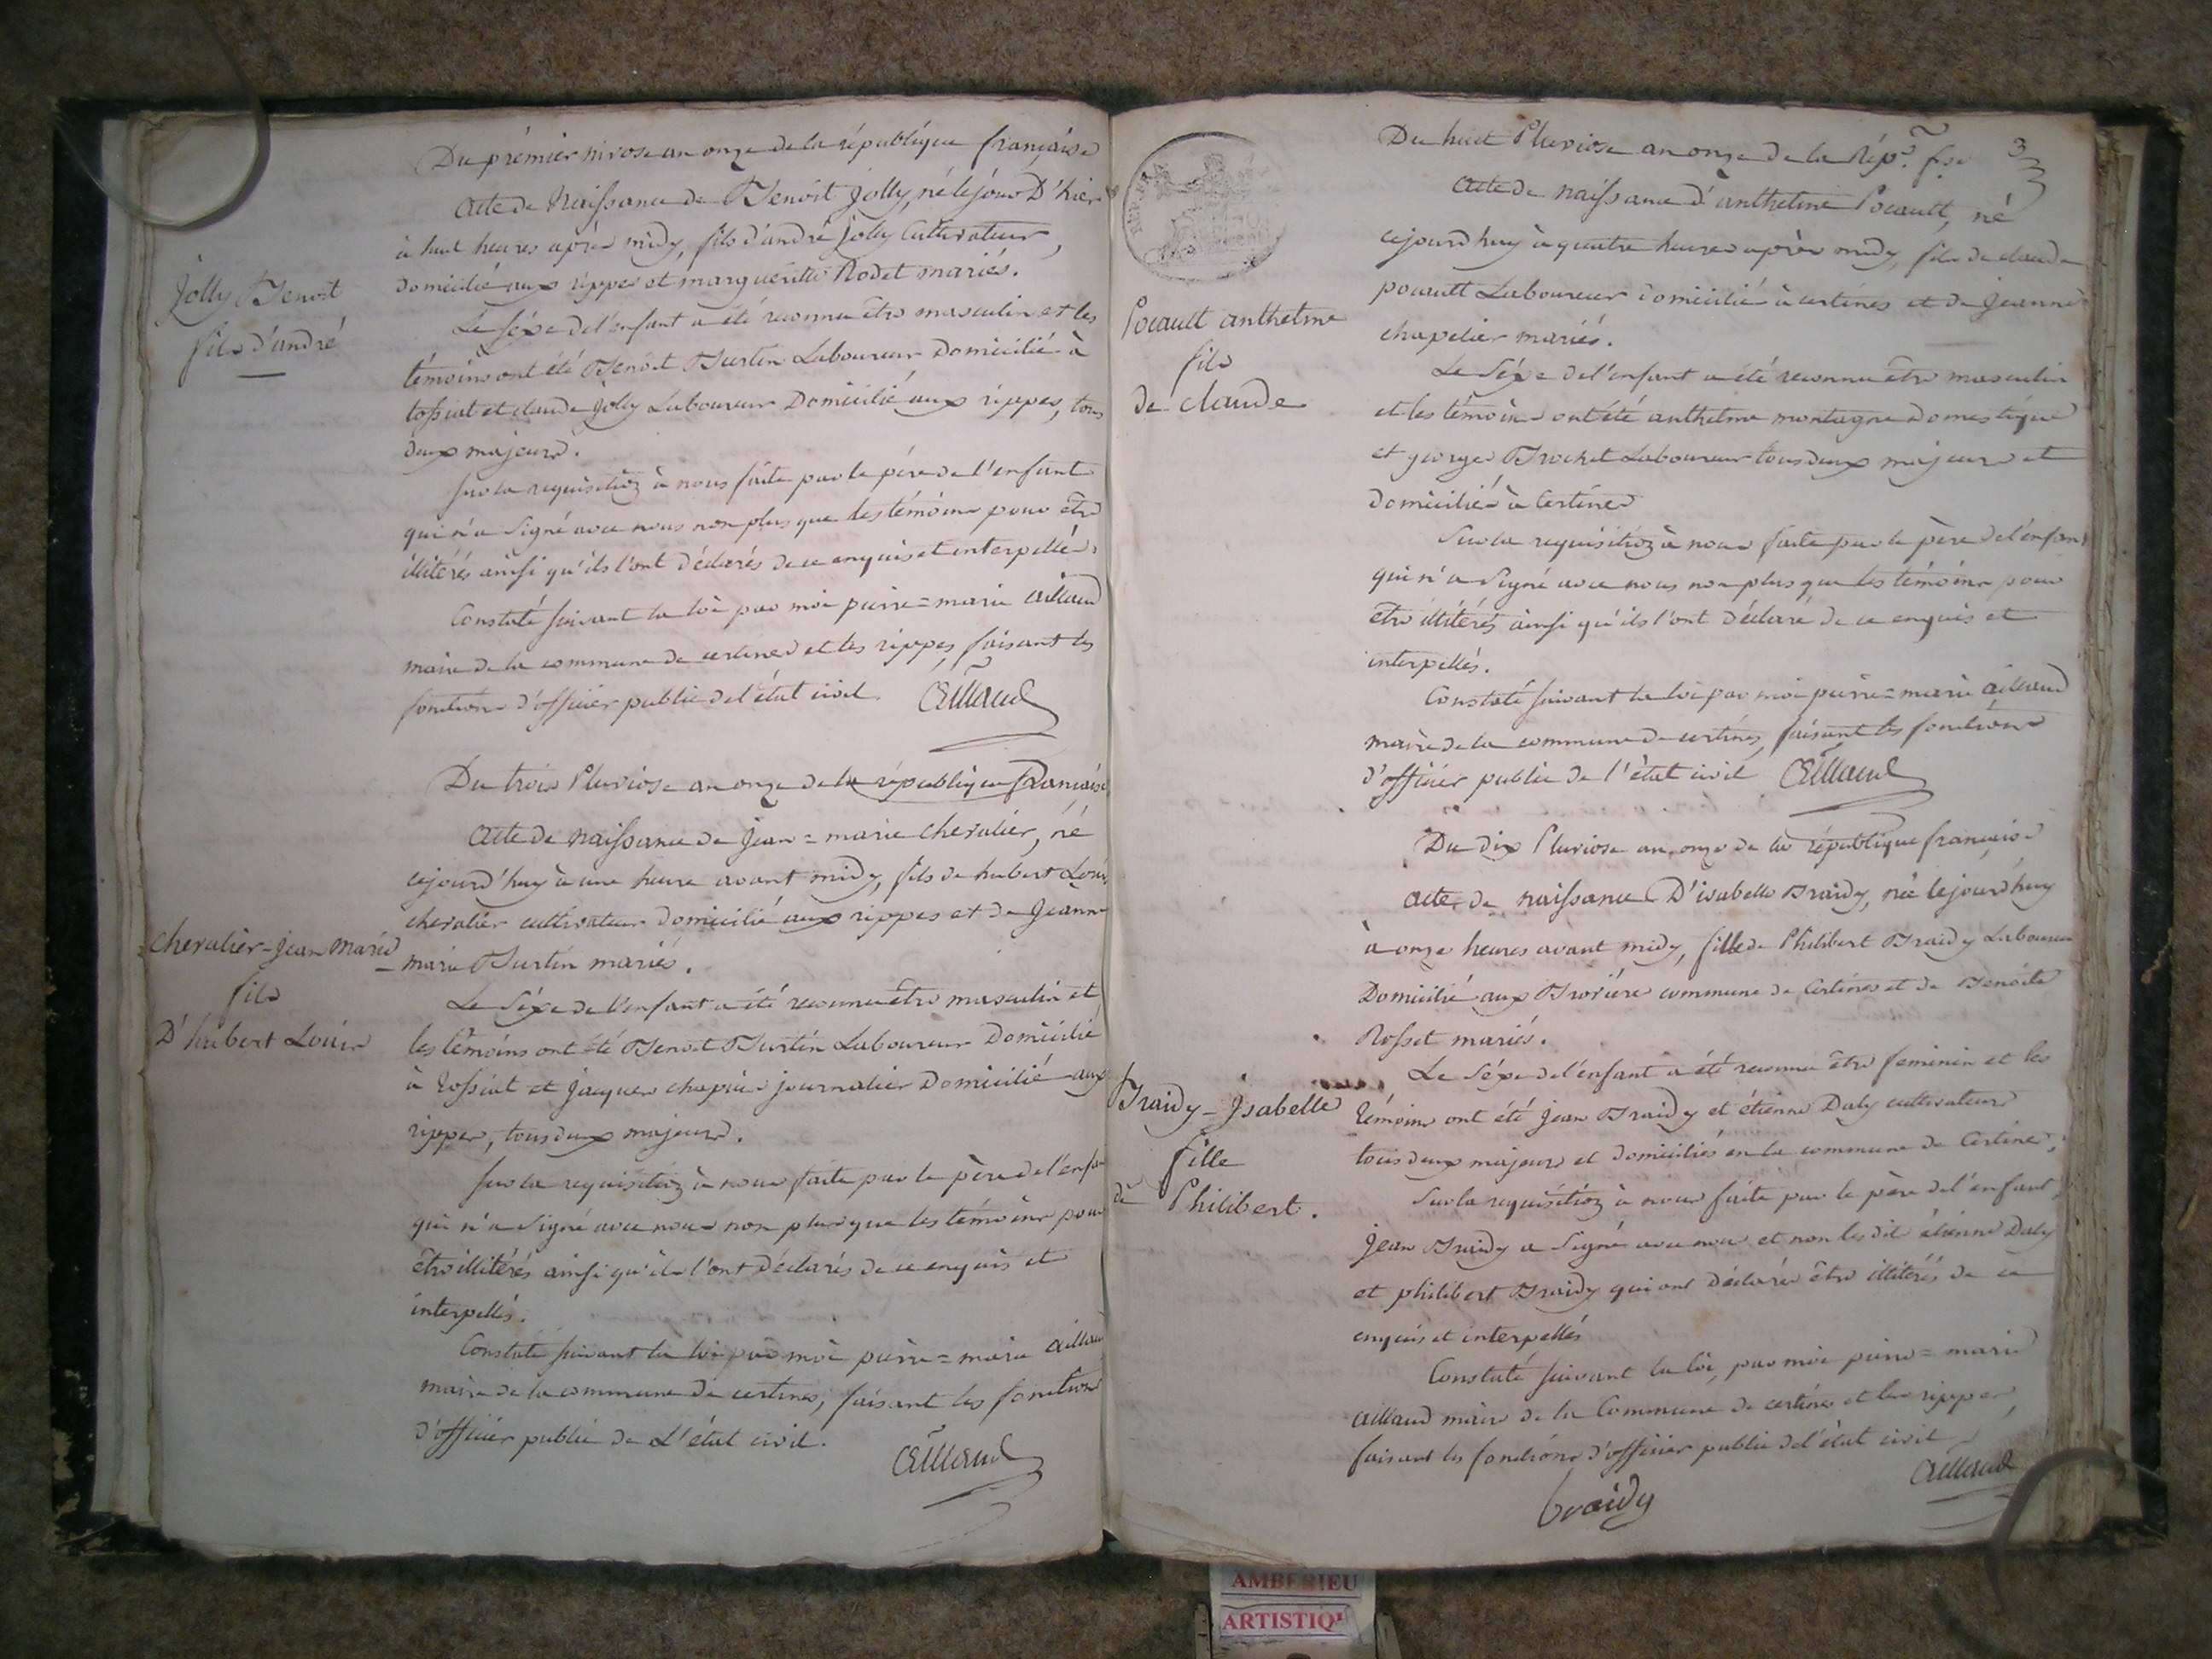 Du prémier nivose an onze de la républiqu française
Acte de Naissance de Benoit Jolly, né le jour D'hier
à huit heures après midy, fils d'andré Jolly Cultivateur,
domicilié aux rippes et margueritte Rodet mariés.
Jolly Benoit
fils d'andré
Le séxe de l'enfant a été reconnu être masculin et les
témoins ont été Benoit Burtin Laboureur Domicilié à
tossiat et claude Jolly Laboureur Domicilié aux rippes, tous
deux majeurs.
sur la requisition à nous faite par le pére de l'enfant
qui n'a signé avec nous non plus que les témoins pour être
illitérés ainsi qu'ils l'ont déclarés de ce enquis et interpellés.
Constaté suivant la loi par moi pierre=marie aillaud
maire de la commune de certines et les rippes, faisant les
fonctions d'officier public de l'état civil. Aillaud
Du trois Pluviose an onze de la république française
Acte de naissance de Jean=marie chevalier, né
cejourd'huy à une heure avant midy, fils de hubert Louis
chevalier cultivateur domicilié aux rippes et de Jeanne
marie Burtin mariés.
chevalier-Jean Marie
fils
D'hubert Louis
Le séxe de l'enfant a été reconnu être masculin et
les témoins ont été Benoit Burtin Laboureur Domicilié
à tossiat et Jacques journalier Domicilié aux
rippes, tous deux majeurs.
sur la requisition à nous faite par le père de l'enfa
qui n'a signé avec nous non plus que les témoins pour
être illitérés ainsi qu'ils l'ont déclarés de ce enquis et
interpellés.
Constaté suivant la loi par moi pierre=marie aillaud
maire de la commune de certines, faisant les fonctions
d'officier public de L'état civil.
Aillaud
Du huit Pluviose an onze de la Rép.e f.se
3
Acte de naissance d'anthelme Pocault, né
cejourd'huy à quatre heures après midy, fils de claude
pocault Laboureur domicilié à certines et de Jeanne
chapelier mariés.
Pocault anthelme
fils
de claude
Le Séxe de l'enfant a été reconnu être masculin
et les témoins ont été anthelme montagne domestique
et george Brochet Laboureur tous deux majeurs et
domiciliés à Certines
Sur la requisition à nous faite par le père de l'enfant
qui n'a signé avec nous non plus que les témoins pour
être illitérés ainsi qu'ils l'ont déclaré de ce enquis et
interpellés.
Constaté suivant la loi par moi pierre=marie aillaud
maire de la commune de certines, faisant les fonctions
d'officier public de l'état civil Aillaud
Du dix Pluviose an onze de la république française
Acte de naissance D'isabelle Braidy, née cejourd'huy
à onze heures avant midy, fille de Philibert Braidy Laboureur
Domicilié aux commune de Certines et de Benoite
Rosset mariés.
Braidy-Isabelle
fille
de Philibert.
Le Séxe de l'enfant a été reconnu être feminin et les
témoins ont été jean Braidy et étienne Daly cultivateurs
tous deux majeurs et domiciliés en la commune de Certines,
Sur la requisition à nous faite par le père de l'enfant,
jean Braidy a signé avec nous et non les dit étienne Daly
et philibert Braidy qui ont déclarés être illitérés de ce
enquis et interpellés
Constaté suivant la loi, par moi pierre=marie
aillaud maire de la Commune de certines et les rippes,
faisant les fonctions d'officier public de l'état civil
Aillaud
braidy
AMBERIEU
ARTISTIQU